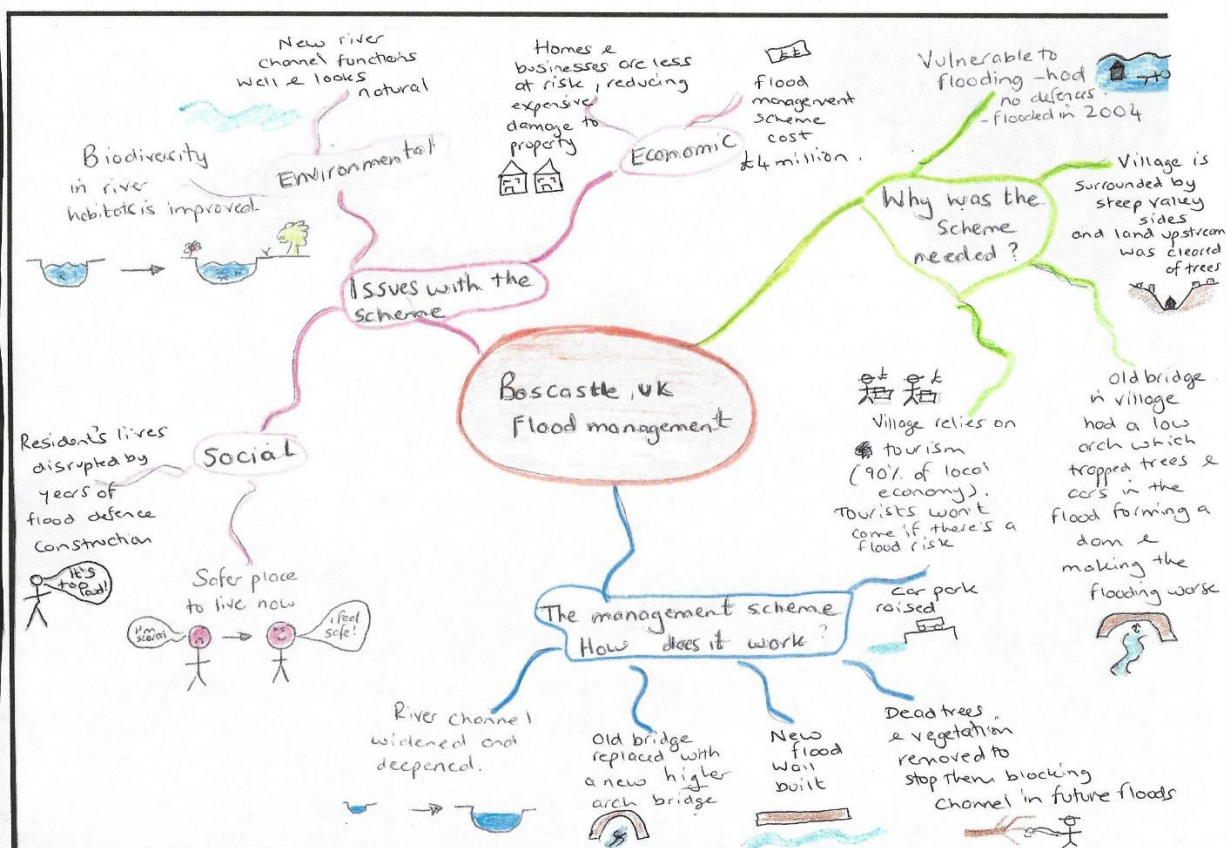 Boscastle, UK
Flood management
Issues with the
scheme
Environmental
New river
channel functions
well & looks
natural
Biodiversity
in river
habitats is improved.
Economic
Homes &
businesses are less
at risk, reducing
expensive
damage to
property
££
flood
management
scheme
cost
£4 million.
Social
Resident's lives
disrupted by
years of
flood defence
construction
It's
too
loud!
Safer place
to live now
I'm
scared
I feel
safe!
Why was the
scheme
needed?
Vulnerable to
flooding - had
no defences.
- flooded in 2004
Village is
surrounded by
steep valley
sides
and land upstream
was cleared
of trees
Old bridge
in village
had a low
arch which
trapped trees &
cars in the
flood forming a
dam &
making the
flooding worse
££
Village relies on
tourism
(90% of local
economy).
Tourists won't
come if there's a
flood risk
The management scheme
How does it work?
Car park
raised
Dead trees
& vegetation
removed to
stop them blocking
channel in future floods
New
flood
wall
built
Old bridge
replaced with
a new higher
arch bridge
River channel
widened and
deepened.